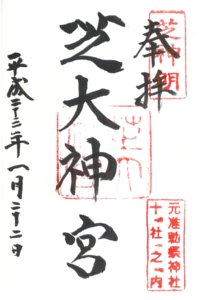 奉拝
芝神明
芝大神宮
平成二十三年一月二十二日
元准勅祭神社
十社之内